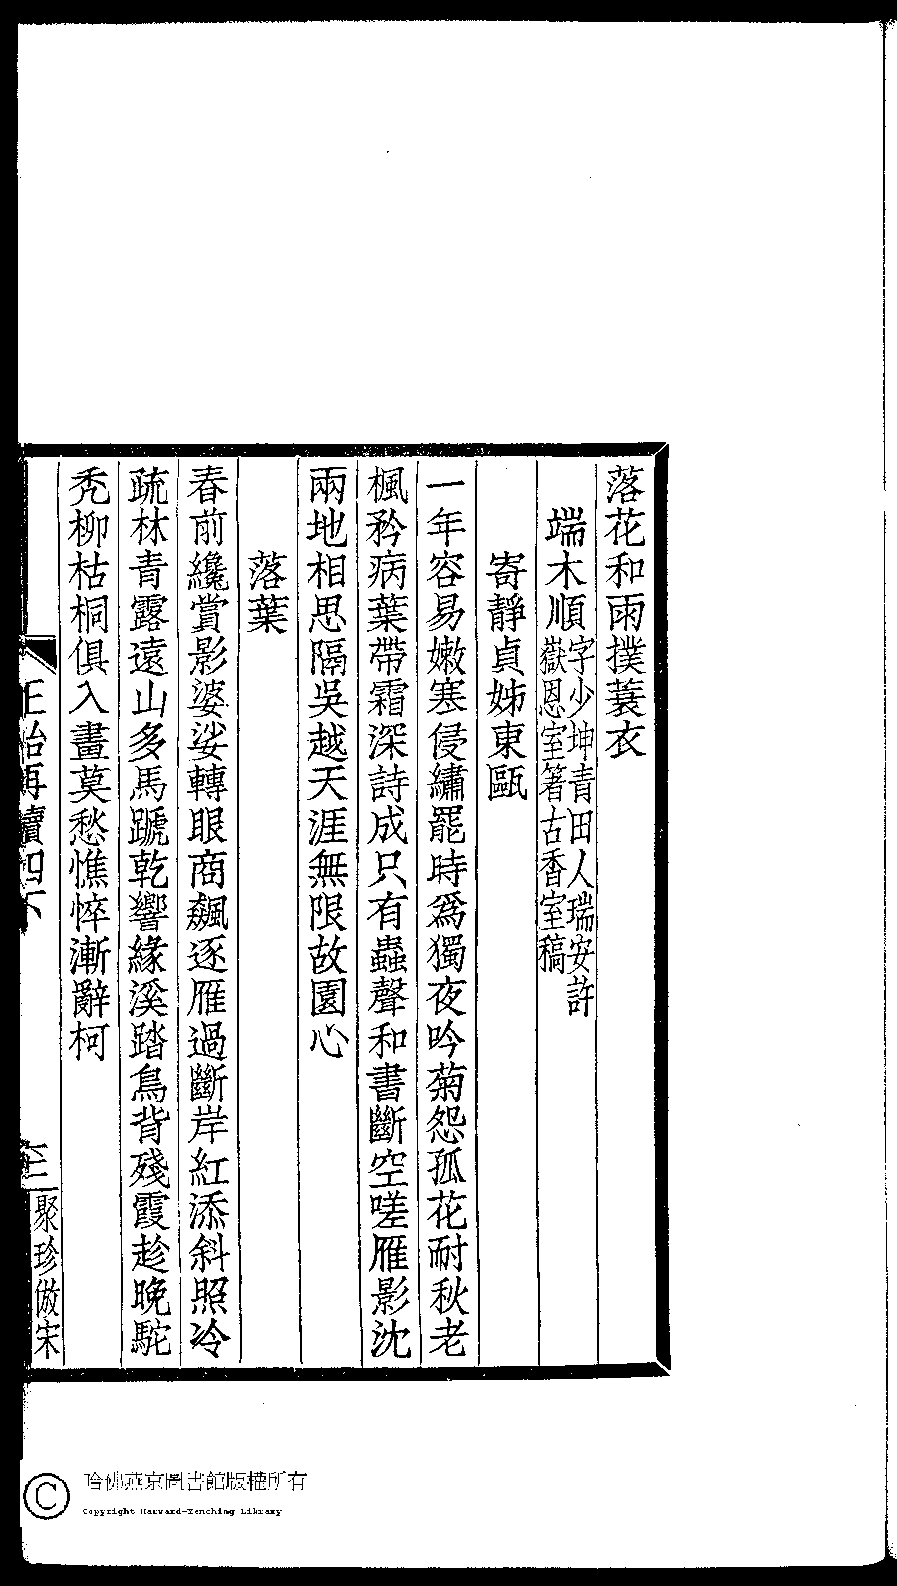 落花和雨撲蓑衣
端木順字少坤青田人瑞安許
嶽恩室箸古香室稿
寄靜貞姊東甌
一年容易嫩寒侵繡罷時爲獨夜吟菊怨孤花耐秋老
楓矜病葉帶霜深詩成只有蟲聲和書斷空嗟雁影沈
兩地相思隔吳越天涯無限故園心
落葉
春前纔賞影婆娑轉眼商飆逐雁過斷岸紅添斜照冷
疏林青露遠山多馬蹏乾響緣溪踏鳥背殘霞趁晚馱
禿柳枯桐俱入畫莫愁憔悴漸辭柯
正始再續四下
聚珍倣宋
哈佛燕京圖書館版權所有
Copyright Harvard-Yenching Library